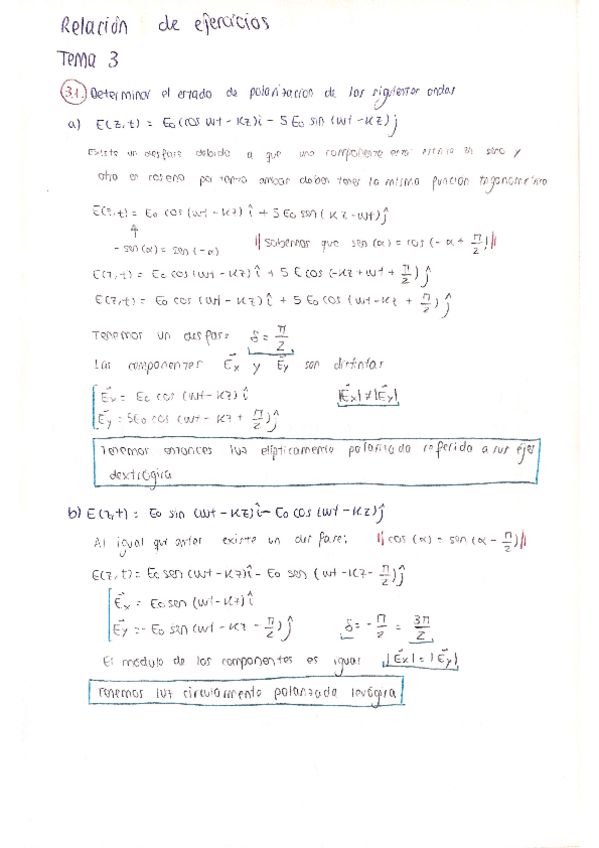 Relación de ejercicios
Tema 3
3.1. Determinar el estado de polarizacion de las siguientes ondas
a) E(z,t) = E₀(cos wt - kz)i - 5 E₀ sin (wt - kz) j
Existe un desfase debido a que una componente está escrita en seno y
otra en coseno por tanto ambas deben tener la misma función trigonométrica
E(z,t) = E₀ cos (wt - kz) î + 5 E₀ sen (kz - wt) ĵ
- sen (α) = sen (-α) || Sabemos que sen (α) = cos (-α + π/2) ||
E(z,t) = E₀ cos (wt - kz) î + 5 E cos (-kz + wt + π/2) ĵ
E(z,t) = E₀ cos (wt - kz) î + 5 E₀ cos (wt - kz + π/2) ĵ
Tenemos un desfase δ = π/2
Las componentes Ex y Ey son distintas
Ex = E₀ cos (wt - kz) î |Ex| ≠ |Ey|
Ey = 5E₀ cos (wt - kz + π/2) ĵ
Tenemos entonces luz elípticamente polarizada referida a sus ejes
dextrógira
b) E(z,t) = E₀ sin (wt - kz) î - E₀ cos (wt - kz) ĵ
Al igual que antes existe un desfase: || cos (α) = sen (α - π/2) ||
E(z,t) = E₀ sen (wt - kz) î - E₀ sen (wt - kz - π/2) ĵ
Ex = E₀ sen (wt - kz) î
Ey = - E₀ sen (wt - kz - π/2) ĵ δ = - π/2 = 3π/2
El módulo de las componentes es igual |Ex| = |Ey|
Tenemos luz circularmente polarizada levógira